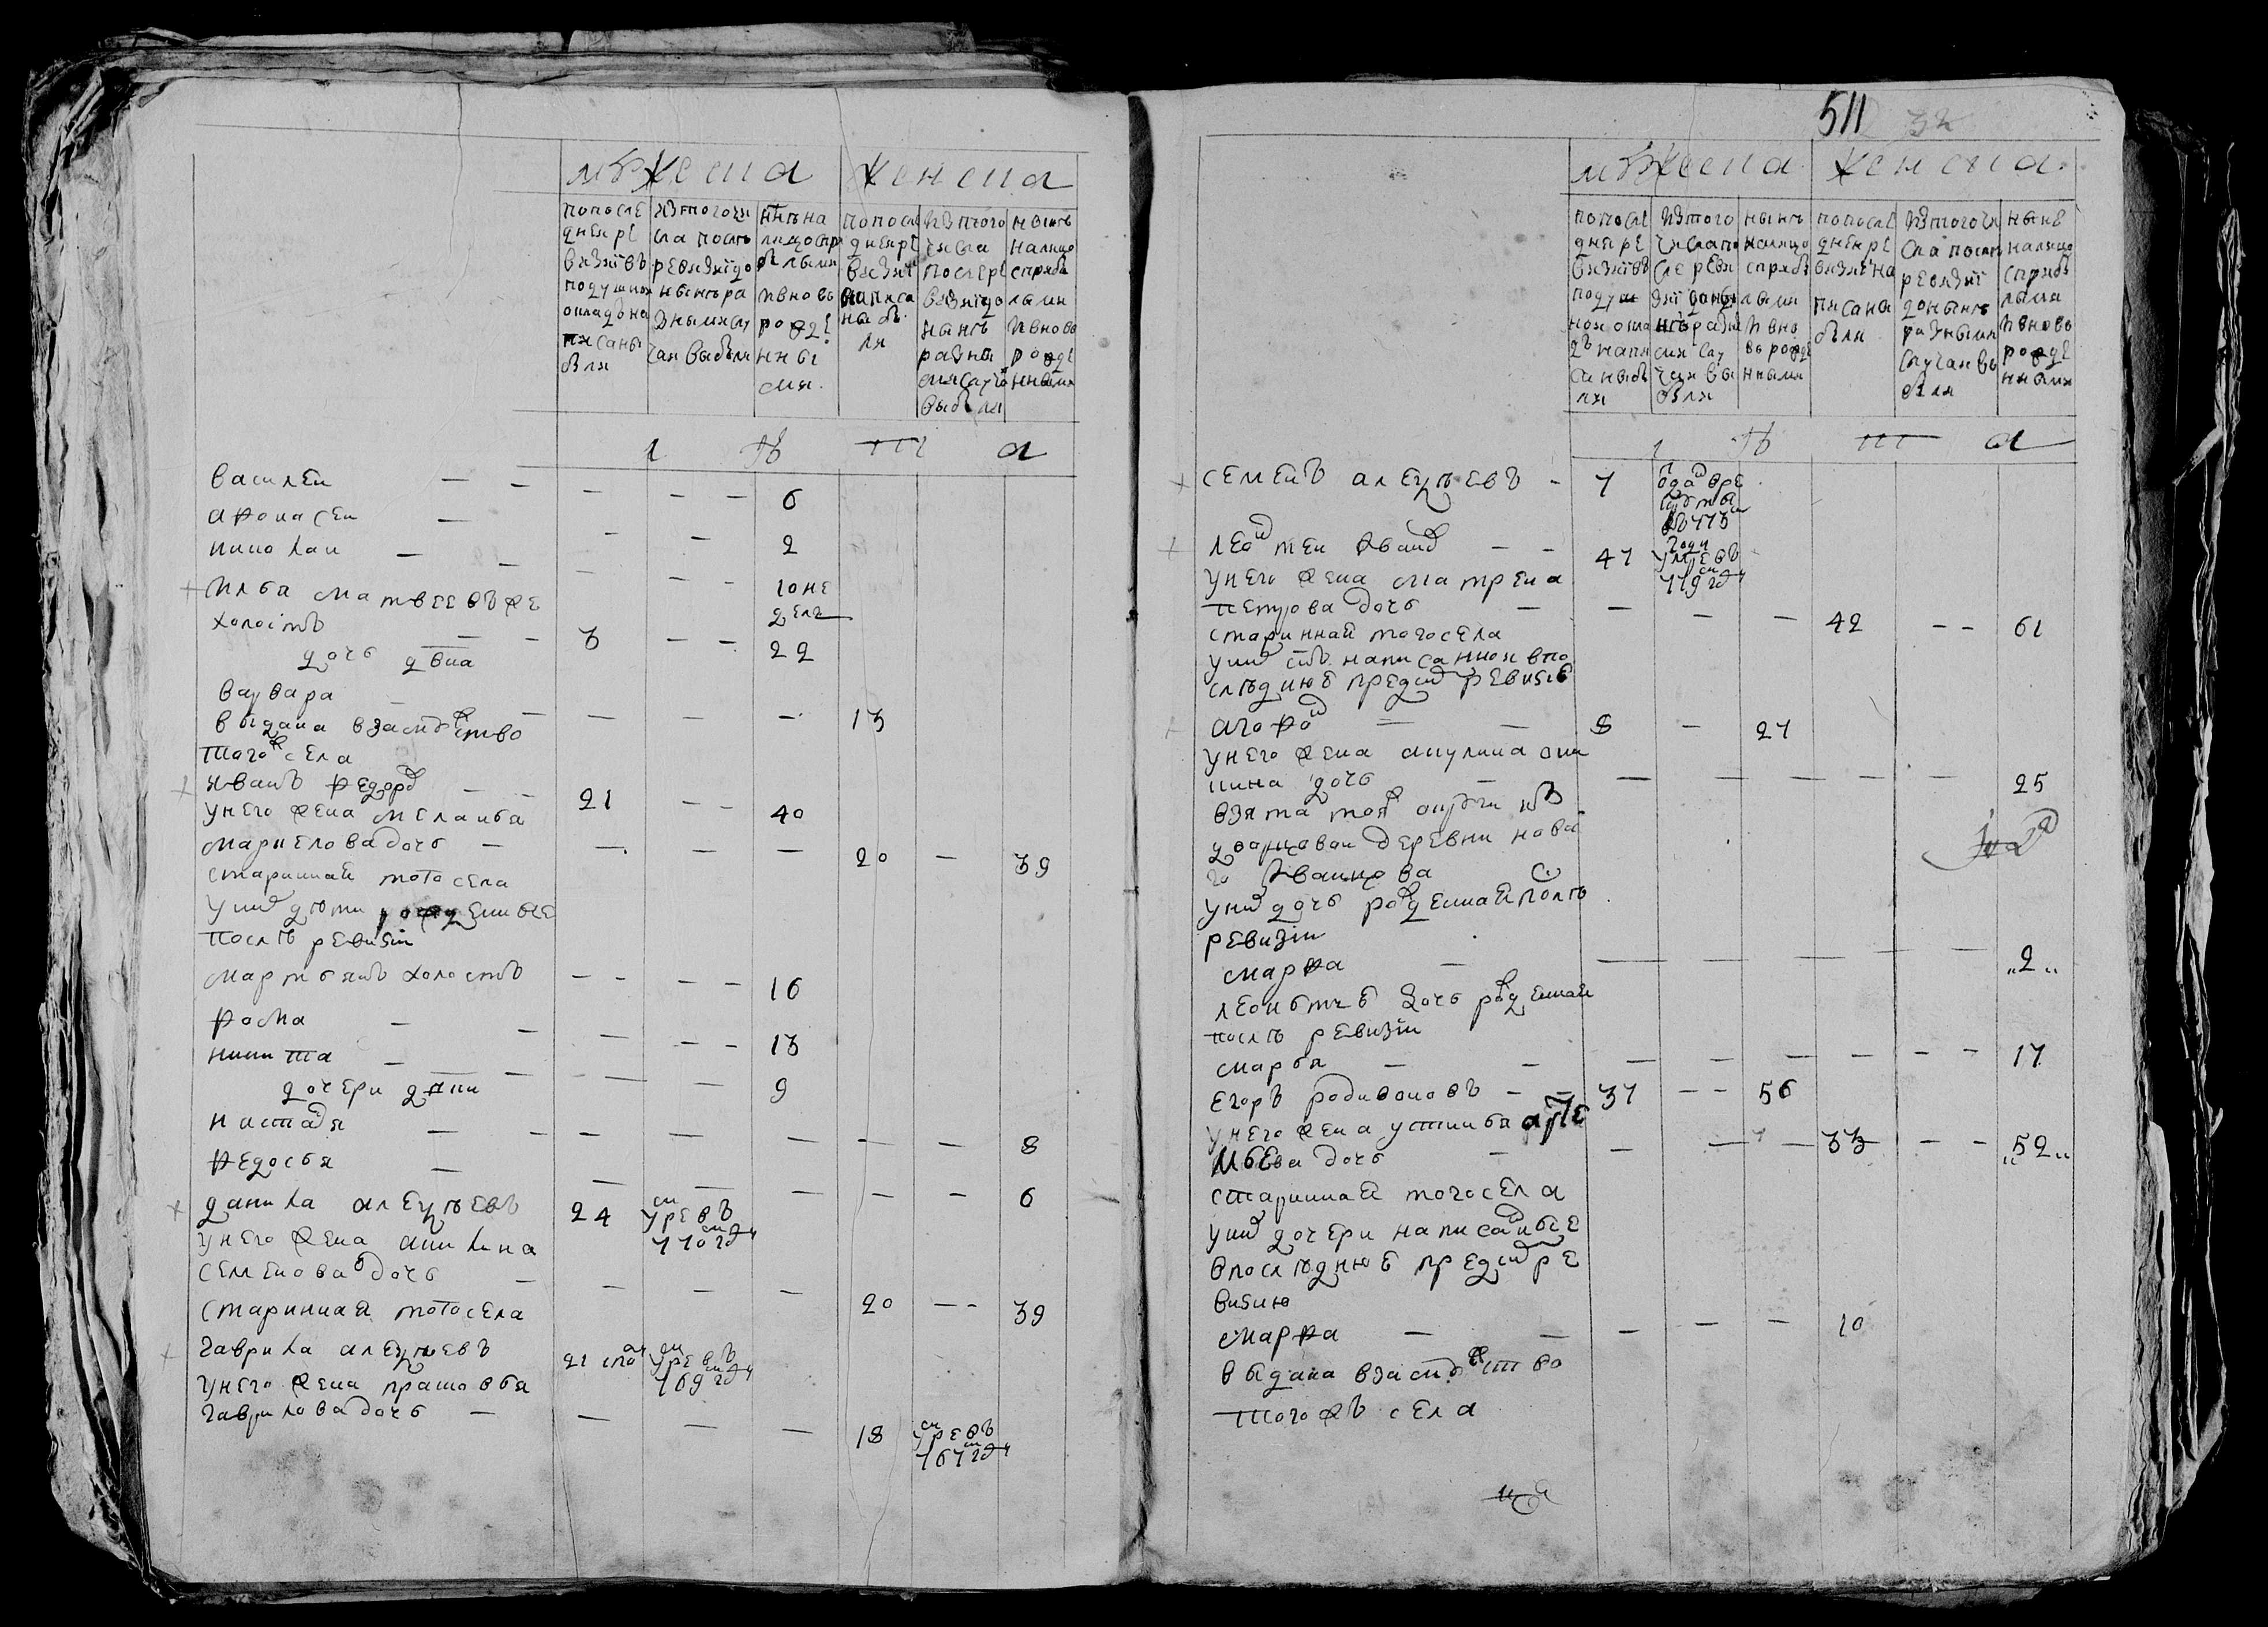 мужеска
женска
попосле
дней ре
визиївъ
подушном
окладе на
писаны
были
изтогочи
сла послѣ
ревизїидо
нынѣ ра
зными слу
чаи выбыли
ннѣ на
лицоспри
былыми
ивновь
рожде
нны
ми
попосле
дней ре
визиї
написа
ны бы
ли
изтого
числа
послере
визиїдо
нынѣ
разны
мислучаи
выбыли
нынѣ
налицо
сприбы
лыми
ивновь
рожде
нными
л ѣ т а
василей — — — — — 6
афонасей — — — 2
николай — — — — 10 не
делъ
илья матвеевъ же
холостъ — — 3 — — 22
дочь двка
варвара — — — — — 13
выдана взамужство
тогожъ села
иванъ федоровъ — — 21 — — 40
унего жена меланья
маркеловадочь — — — — 20 — 39
стариннай тогосела
унихъ дѣти рожденные
послѣ ревизїи
мартьянъ холостъ — — — — 16
фома — — — — — 13
никита — — — — 9
дочери двки
настасья — — — — — — — 8
федосья — — — — — — 6
данила алеѯѣевъ 24 умре въ
770 году
унего жена акилина
семеновадочь — — — — 20 — — 39
стариннай тогосела
гаврила алеѯѣевъ 21 умре въ
769 году
унего жена прасковья
гавриловадочь — — — — 18 умре въ
767 году
511
32
мужеска
женска
попосле
дней ре
визиївъ
подуш
ном окла
дѣ напи
саны бы
ли
изтого
числапо
сле реви
зиї доны
нѣ разны
ми слу
чаи вы
были
нынѣ
налицо
сприбы
лыми
ивно
ворожде
нными
попосле
дней ре
визиїна
писаны
были
изтогочи
сла послѣ
ревизиї
донынѣ
разными
случаи вы
были
нынѣ
налицо
сприбы
лыми
ивновь
рожде
нными
л ѣ т а
семенъ алеѯѣевъ — 7 отданъ вре
круты
въ 773м
году
леонтей ивановъ — — 47 умре въ
779 году
унего жена матрена
петрова дочь — — — — 42 — — 61
стариннай тогосела
унихъ сынъ написанной впо
слѣднюю предъ сим ревизию
агафонъ — — 8 — 27
унего жена акулина они
кина дочь — — — — — — 25
взята тойжъ округи изъ
дворцовой деревни нова
го Иванцова
унихъ дочь рожденнай послѣ
ревизїи
марфа — — — — — — „2„
леонтья дочь рожденнай
послѣ ревизїи
марья — — — — — — — — 17
егоръ родивоновъ — — 37 — — 56
унего жена устинья арте
мьева дочь — — — — 33 — — „52„
стариннай тогосела
унихъ дочери написанные
впослѣднюю предъ сим ре
визию
марфа — — — — — 10
выдана взамужство
тогожъ села